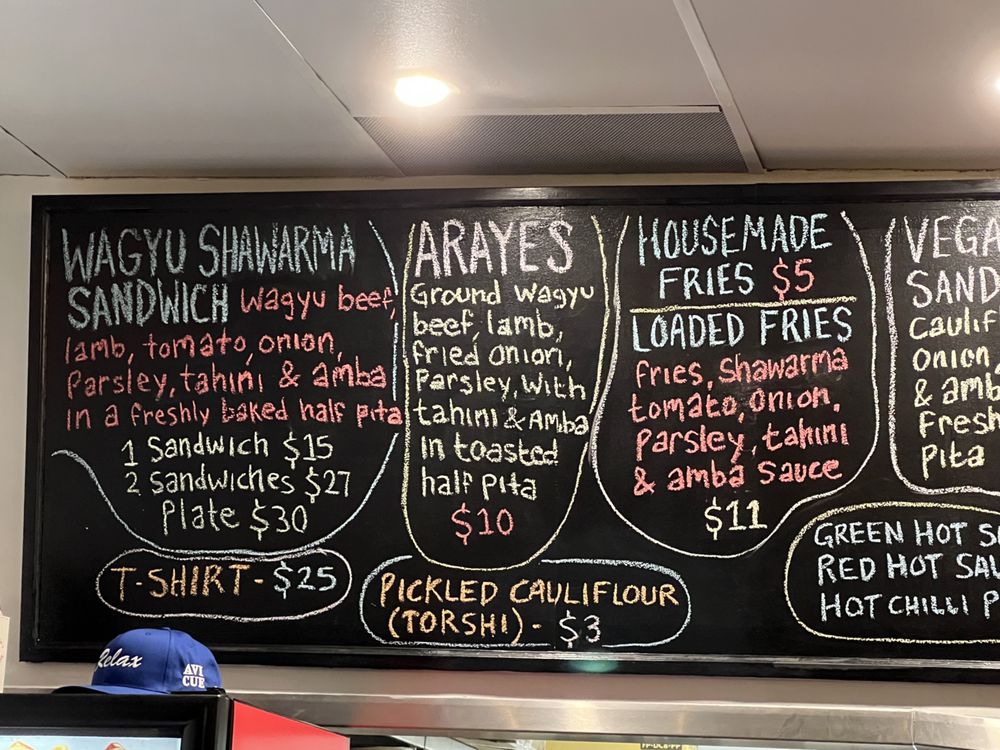 WAGYU SHAWARMA
SANDWICH Wagyu beef,
lamb, tomato, onion,
Parsley, tahini & amba
In a freshly baked half pita
1 Sandwich $15
2 Sandwiches $27
Plate $30
T-SHIRT - $25
ARAYES
Ground Wagyu
beef, lamb,
fried onion,
Parsley, with
tahini & Amba
In toasted
half pita
$10
PICKLED CAULIFLOUR
(TORSHI) - $3
HOUSEMADE
FRIES $5
LOADED FRIES
fries, Shawarma
tomato, onion,
Parsley, tahini
& amba Sauce
$11
VEGA
SAND
Caulif
Onion,
& amb
Fresh
Pita
GREEN HOT S
RED HOT SAU
HOT CHILLI P
Relax
AVI
CUE